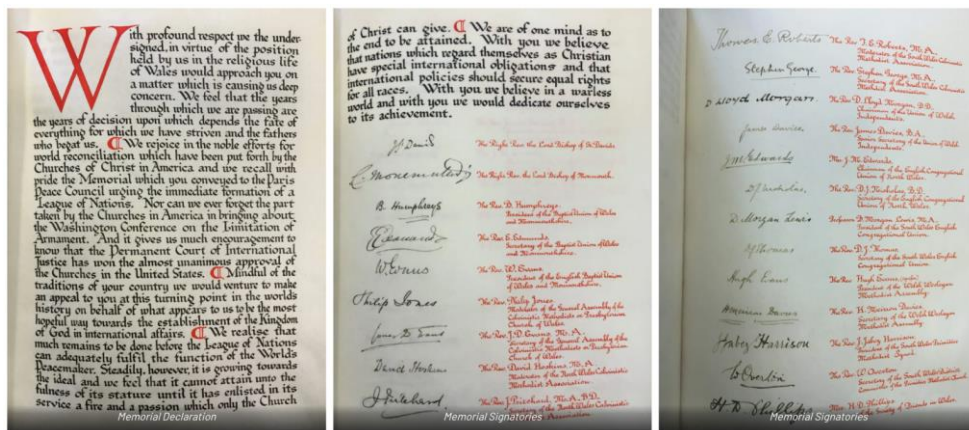 With profound respect we the under-
signed, in virtue of the position
held by us in the religious life
of Wales would approach you on
a matter which is causing us deep
concern. We feel that the years
through which we are passing are
the years of decision upon which depends the fate of
everything for which we have striven and the fathers
who begat us. We rejoice in the noble efforts for
world reconciliation which have been put forth by the
Churches of Christ in America and we recall with
pride the Memorial which you conveyed to the Paris
Peace Council urging the immediate formation of a
League of Nations. Nor can we ever forget the part
taken by the Churches in America in bringing about
the Washington Conference on the Limitation of
Armament. And it gives us much encouragement to
know that the Permanent Court of International
Justice has won the almost unanimous approval of
the Churches in the United States. Mindful of the
traditions of your country we would venture to make
an appeal to you at this turning point in the worlds
history on behalf of what appears to us to be the most
hopeful way towards the establishment of the Kingdom
of God in international affairs. We realise that
much remains to be done before the League of Nations
can adequately fulfil the function of the World's
Peacemaker. Steadily, however, it is growing towards
the ideal and we feel that it cannot attain unto the
fulness of its stature until it has enlisted in its
service a fire and a passion which only the Church
Memorial Declaration
of Christ can give. We are of one mind as to
the end to be attained. With you we believe
that nations which regard themselves as Christian
have special international obligations and that
international policies should secure equal rights
for all races. With you we believe in a warless
world and with you we would dedicate ourselves
to its achievement.
The Right Rev. the Lord Bishop of St Davids
The Right Rev. the Lord Bishop of Monmouth.
B. Humphreys
The Rev. B. Humphreys.
President of the Baptist Union of Wales
and Monmouthshire.
The Rev. E. Edmunds.
Secretary of the Baptist Union of Wales
and Monmouthshire.
W. Evans
The Rev. W. Evans
President of the English Baptist Union
of Wales and Monmouthshire.
Philip Jones
The Rev. Philip Jones.
Moderator of the General Assembly of the
Calvinistic Methodists or Presbyterian
Church of Wales.
Secretary of the General Assembly of the
Calvinistic Methodists or Presbyterian
Church of Wales.
David Hoskins
The Rev. David Hoskins, M.A.
Moderator of the North Wales Calvinistic
Methodist Association.
J Pritchard
The Rev. J Pritchard, M.A., B.D.
Secretary of the North Wales Calvinistic
Association.
Memorial Signatories
Thomas E. Roberts
The Rev. T. E. Roberts, M.A.
Moderator of the South Wales Calvinistic
Methodist Association.
Stephen George.
The Rev. Stephen George, M.A.
Secretary of the South Wales Calvinistic
Methodist Association.
D Lloyd Morgan.
The Rev. D. Lloyd Morgan, D.D.
Chairman of the Union of Welsh
Independents.
James Davies
The Rev. James Davies, B.A.
Senior Secretary of the Union of Welsh
Independents.
J.M. Edwards
Chairman of the English Congregational
Union of North Wales.
D J Nicholas.
The Rev. D.J. Nicholas, B.D.
Secretary of the English Congregational
Union of North Wales.
D. Morgan Lewis
Professor D. Morgan Lewis, M.A.
President of the South Wales English
Congregational Union.
D J Thomas
The Rev. D.J. Thomas.
Secretary of the South Wales English
Congregational Union.
Hugh Evans
The Rev. Hugh Evans
President of the Welsh Wesleyan
Methodist Assembly.
The Rev. H. Meirion Davies.
Secretary of the Welsh Wesleyan
Methodist Assembly.
Jabez Harrison
The Rev. J. Jabez Harrison
W Overton
The Rev. W Overton
H D Phillips
H. D. Phillips
of the Society of Friends in Wales.
Memorial Signatories